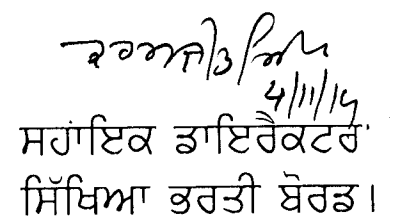 4/11/14
ਸਹਾਇਕ ਡਾਇਰੈਕਟਰ
ਸਿੱਖਿਆ ਭਰਤੀ ਬੋਰਡ।